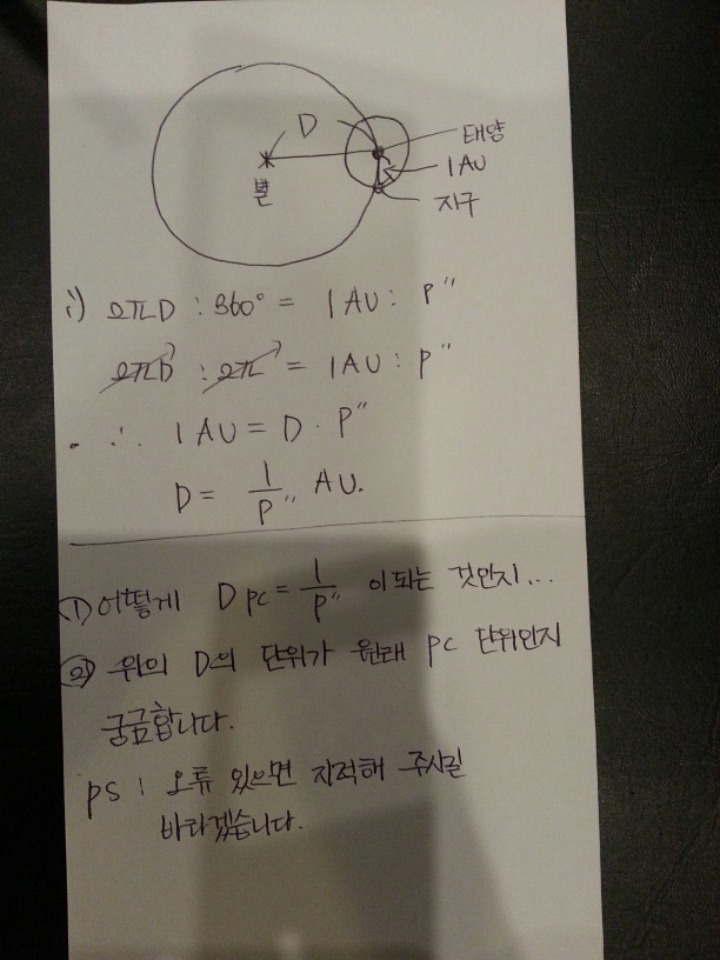 D
태양
1AU
별
지구
i) 2πD : 360° = 1AU : P″
2πD : 2π = 1AU : P″
∴ 1AU = D · P″
D = 1/P″ AU.
① 어떻게 D pc = 1/P″ 이 되는 것인지...
② 위의 D의 단위가 원래 pc 단위인지
궁금합니다.
ps : 오류 있으면 지적해 주시길
바라겠습니다.